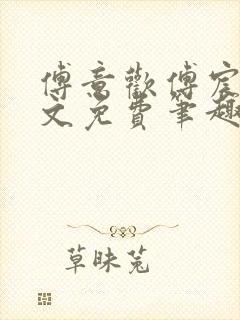 傅意歡傅宸
文免費筆趣
草昧菟